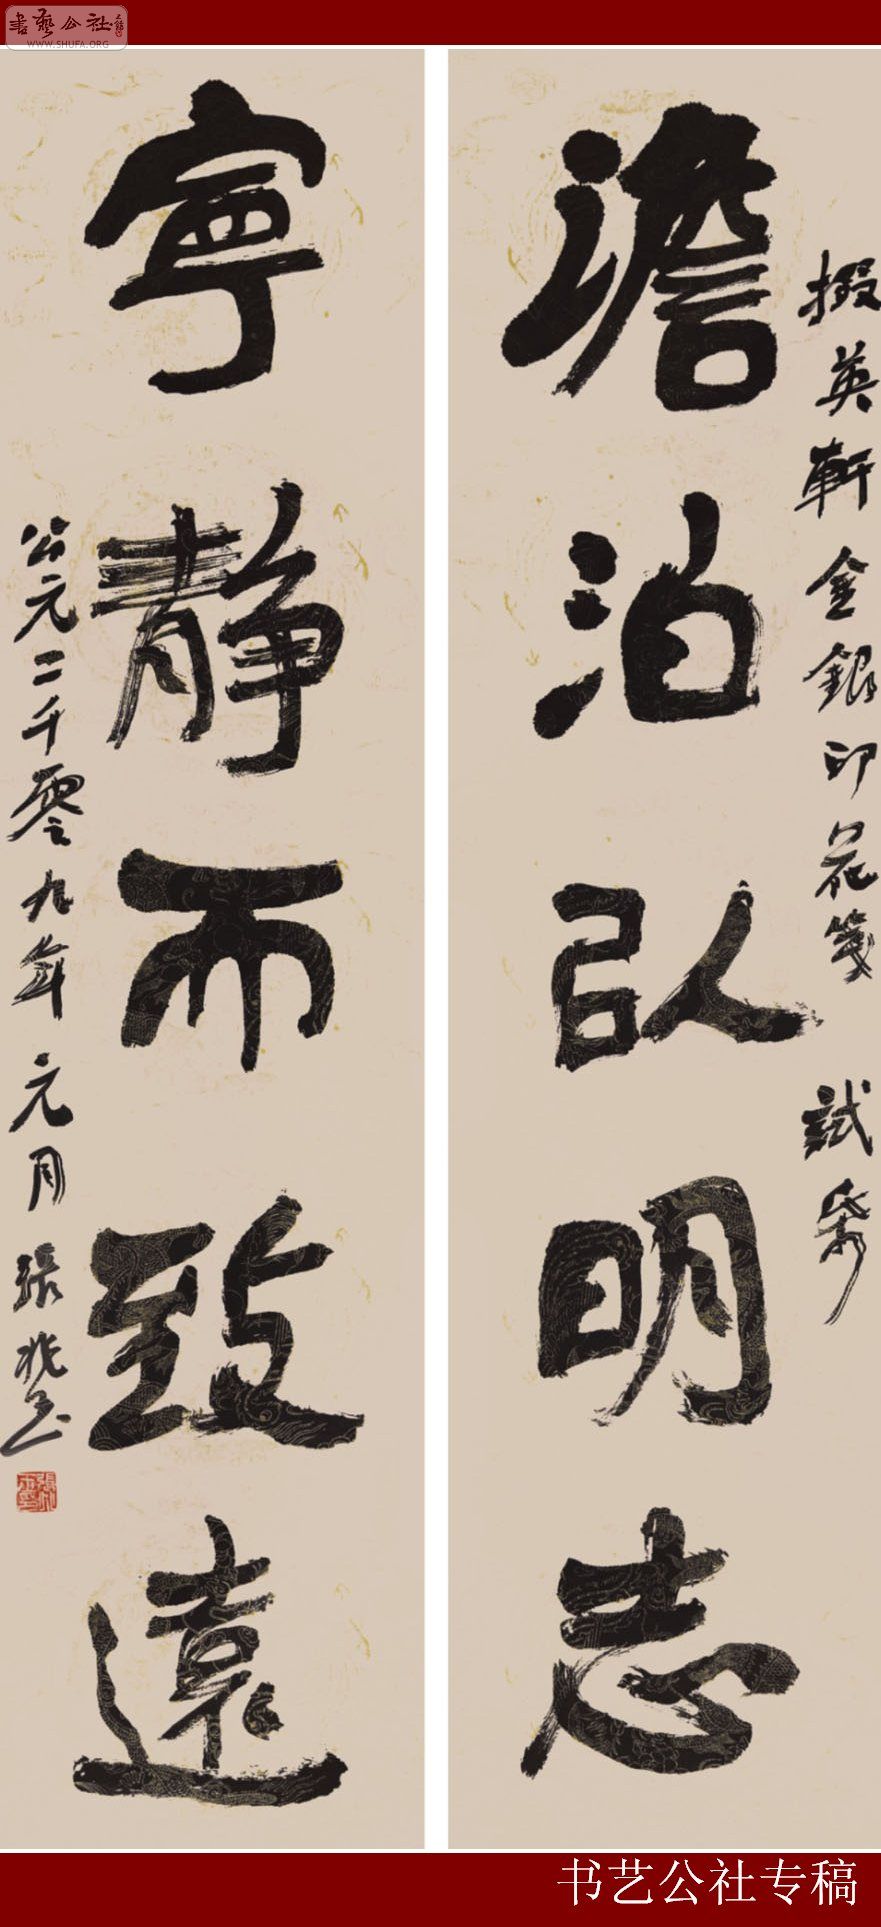 書藝公社
WWW.SHUFA.ORG
掇英軒金銀印花箋試筆
澹泊以明志
寧靜而致遠
公元二千零九年元月張兆玉
书艺公社专稿